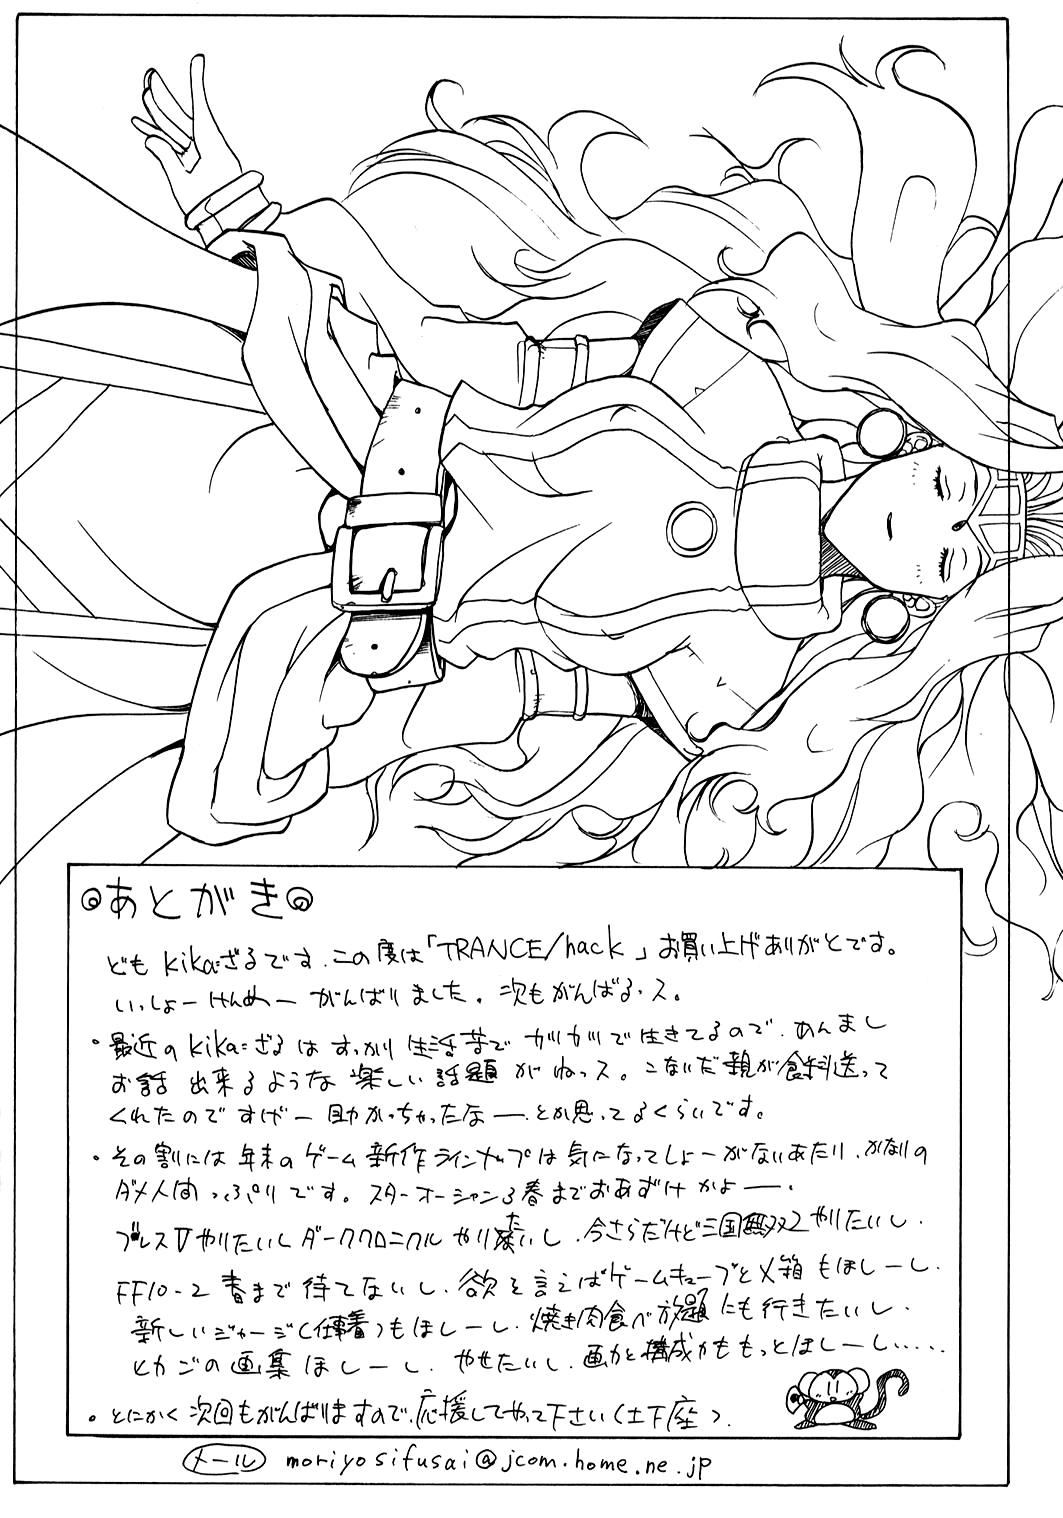 ◎あとがき◎
ども kika=ざるです．この度は「TRANCE/hack」お買い上げありがとです。
いっしょーけんめー がんばりました。次もがんばるっス。
・最近のkika=ざるは すっかり 生活苦で ガリガリで生きてるので．あんまし
お話 出来るような 楽しい 話題 がねっス。こないだ親が食料送って
くれたので すげー 助かっちゃったなー．とか思ってるくらいです。
・その割には 年末の ゲーム 新作ラインナップは 気になってしょーがないあたり．かなりの
ダメ人間っぷりです。スターオーシャン3春までおあずけかよー．
ブレスⅤやりたいし ダーククロニクル やりたいし．今さらだけど三国無双2 やりたいし．
FF10-2 春まで待てないし．欲を言えばゲームキューブと×箱もほしーし．
新しいジャージ(仕事着)もほしーし．焼き肉食べ放題にも行きたいし．
ヒカゴの画集ほしーし．やせたいし．画力と構成力ももっとほしーし.....
・とにかく次回もがんばりますので．応援してやって下さい(土下座)．
メール moriyosifusai@jcom.home.ne.jp